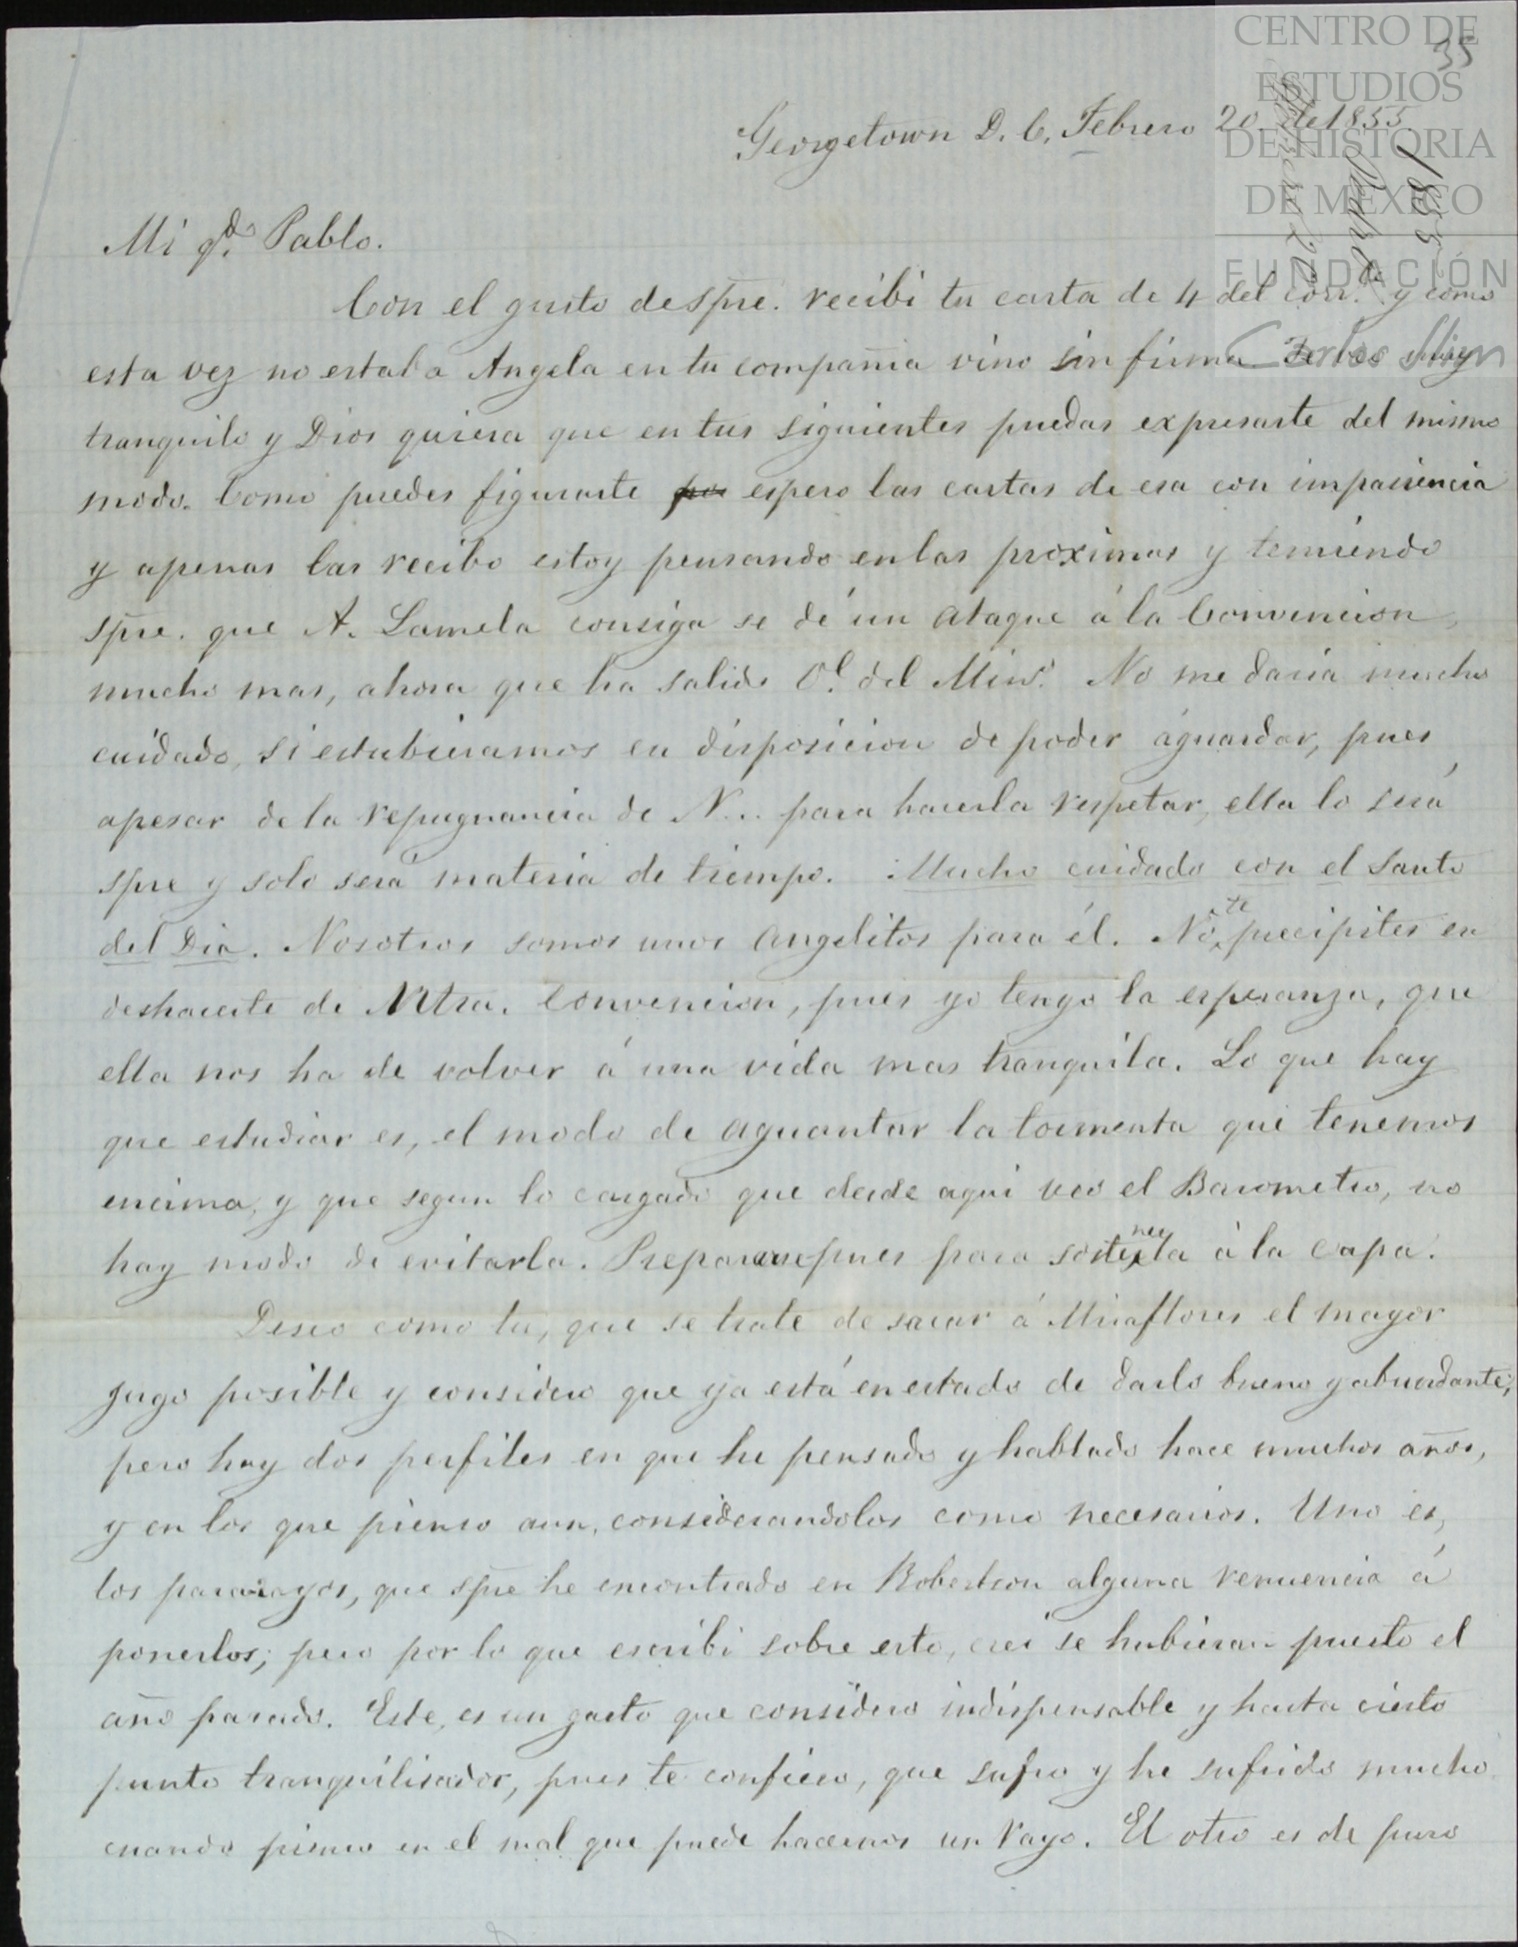 CENTRO DE
ESTUDIOS
DE HISTORIA
DE MÉXICO
FUNDACIÓN
Carlos Slim
35
1855
Georgetown D. C. Febrero 20 de 1855
Mi qdo. Pablo.
Con el gusto de spre. recibi tu carta de 4 del corr.te y como
esta vez no estaba Angela en tu compañia vino sin firma. Te veo muy
tranquilo y Dios quiera que en tus siguientes puedas expresarte del mismo
modo. Como puedes figurarte por espero las cartas de esa con impaciencia
y apenas las recibo estoy pensando en las proximas y temiendo
spre. que A. Lamela consiga se dé un ataque á la Convencion,
mucho mas, ahora que ha salido Ol. del Mino. No me daria mucho
cuidado, si estubieramos en disposicion de poder aguardar, pues
apesar de la repugnancia de N... para hacerla respetar, ella lo será
spre y solo será materia de tiempo. Mucho cuidado con el Santo
del Dia. Nosotros somos unos angelitos para él. No te precipites en
deshacerte de Ntra. Convencion, pues yo tengo la esperanza, que
ella nos ha de volver á una vida mas tranquila. Lo que hay
que estudiar es, el modo de aguantar la tormenta que tenemos
encima, y que segun lo cargado que desde aqui veo el Barometro, no
hay modo de evitarla. Prepararse pues para sostenerla á la capa.
Deseo como tu, que se trate de sacar á Miraflores el mayor
jugo posible y considero que ya está en estado de darlo bueno y abundante;
pero hay dos perfiles en que he pensado y hablado hace muchos años,
y en los que pienso aun, considerandolos como necesarios. Uno es,
los pararayos, que spre he encontrado en Robertson alguna renuencia á
ponerlos; pero por lo que escribi sobre esto, crei se hubieran puesto el
año pasado. Este, es un gasto que considero indispensable y hasta cierto
punto tranquilisador, pues te confieso, que sufro y he sufrido mucho
cuando pienso en el mal que puede hacernos un rayo. El otro es de puro